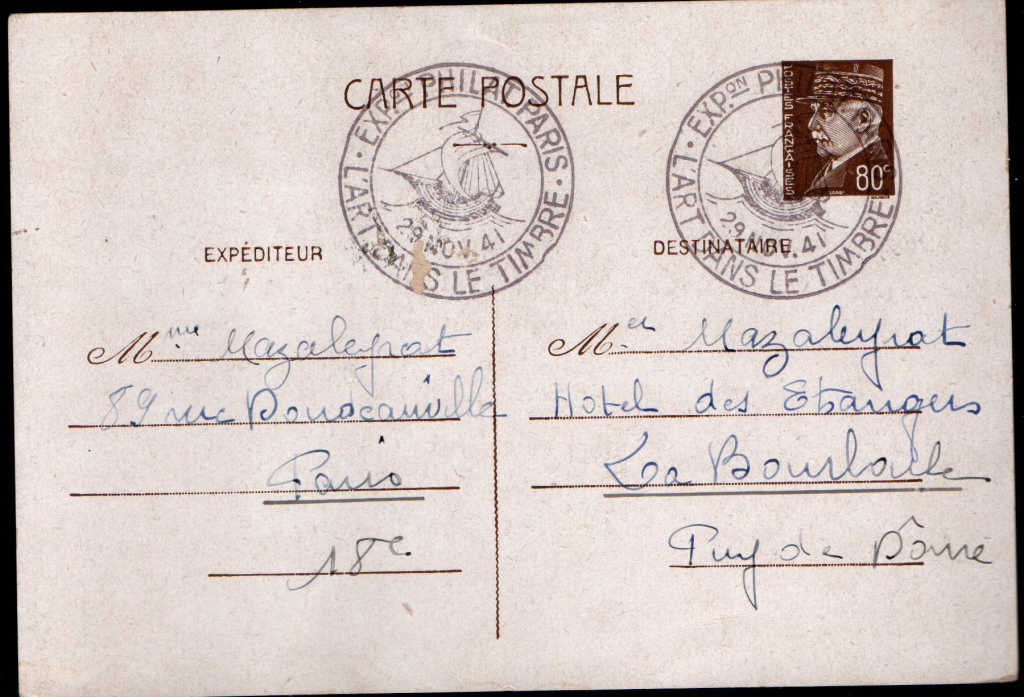 CARTE POSTALE
EXP.ON PHILAT. PARIS · L'ART DANS LE TIMBRE ·
29 NOV. 41
EXP.ON PHI · L'ART DANS LE TIMBRE
29 NOV. 41
POSTES FRANÇAISES
80c
EXPÉDITEUR
Mme Mazaleyrat
89 rue
Paris
18e
DESTINATAIRE
M. et Mazaleyrat
Hotel des Etrangers
La Bourboule
Puy de Dôme